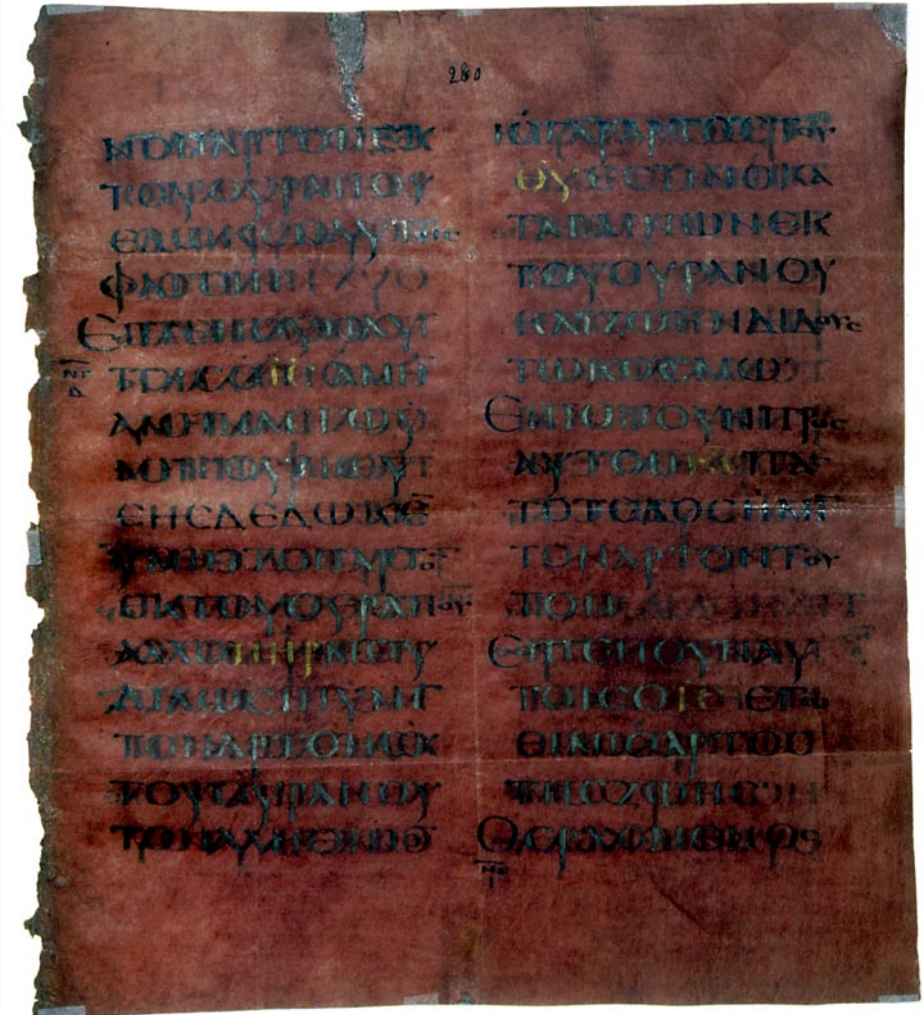 280
ΝΟΝΑΡΤΟΝΕΚ
ΤΟΥΟΥΡΑΝΟΥ
ΕΔΩΚΕΝΑΥΤΟΙϹ
ΦΑΓΕΙΝ
ΕΙΠΕΝΟΥΝΑΥ
ΤΟΙϹΟΙ̅Ϲ̅ΑΜΗ̅
ΑΜΗΝΛΕΓΩΥ
ΜΙΝΟΥΜΩΥ
ϹΗϹΔΕΔΩΚΕ̅
ΥΜΙΝΤΟΝΑΡΤΟ̅
ΕΚΤΟΥΟΥΡΑΝΟΥ
ΑΛΛΟΠ̅Η̅Ρ̅ΜΟΥ
ΔΙΔΩϹΙΝΥΜΙ̅
ΤΟΝΑΡΤΟΝΕΚ
ΤΟΥΟΥΡΑΝΟΥ
ΤΟΝΑΛΗΘΙΝΟ̅
ΟΓΑΡΑΡΤΟϹΤΟΥ
Θ̅Υ̅ΕϹΤΙΝΟΚΑ
ΤΑΒΑΙΝΩΝΕΚ
ΤΟΥΟΥΡΑΝΟΥ
ΚΑΙΖΩΗΝΔΙΔΟΥϹ
ΤΩΚΟϹΜΩ
ΕΙΠΟΝΟΥΝΠΡΟϹ
ΑΥΤΟΝΚ̅Ε̅ΠΑ
ΤΟΤΕΔΟϹΗΜΙ̅
ΤΟΝΑΡΤΟΝΤΟΥ
ΤΟΝ
ΕΙΠΕΝΟΥΝΑΥ
ΤΟΙϹΟΙ̅Ϲ̅ΕΓΩ
ΕΙΜΙΟΑΡΤΟϹ
ΤΗϹΖΩΗϹ
ΟΕΡΧΟΜΕΝΟϹ